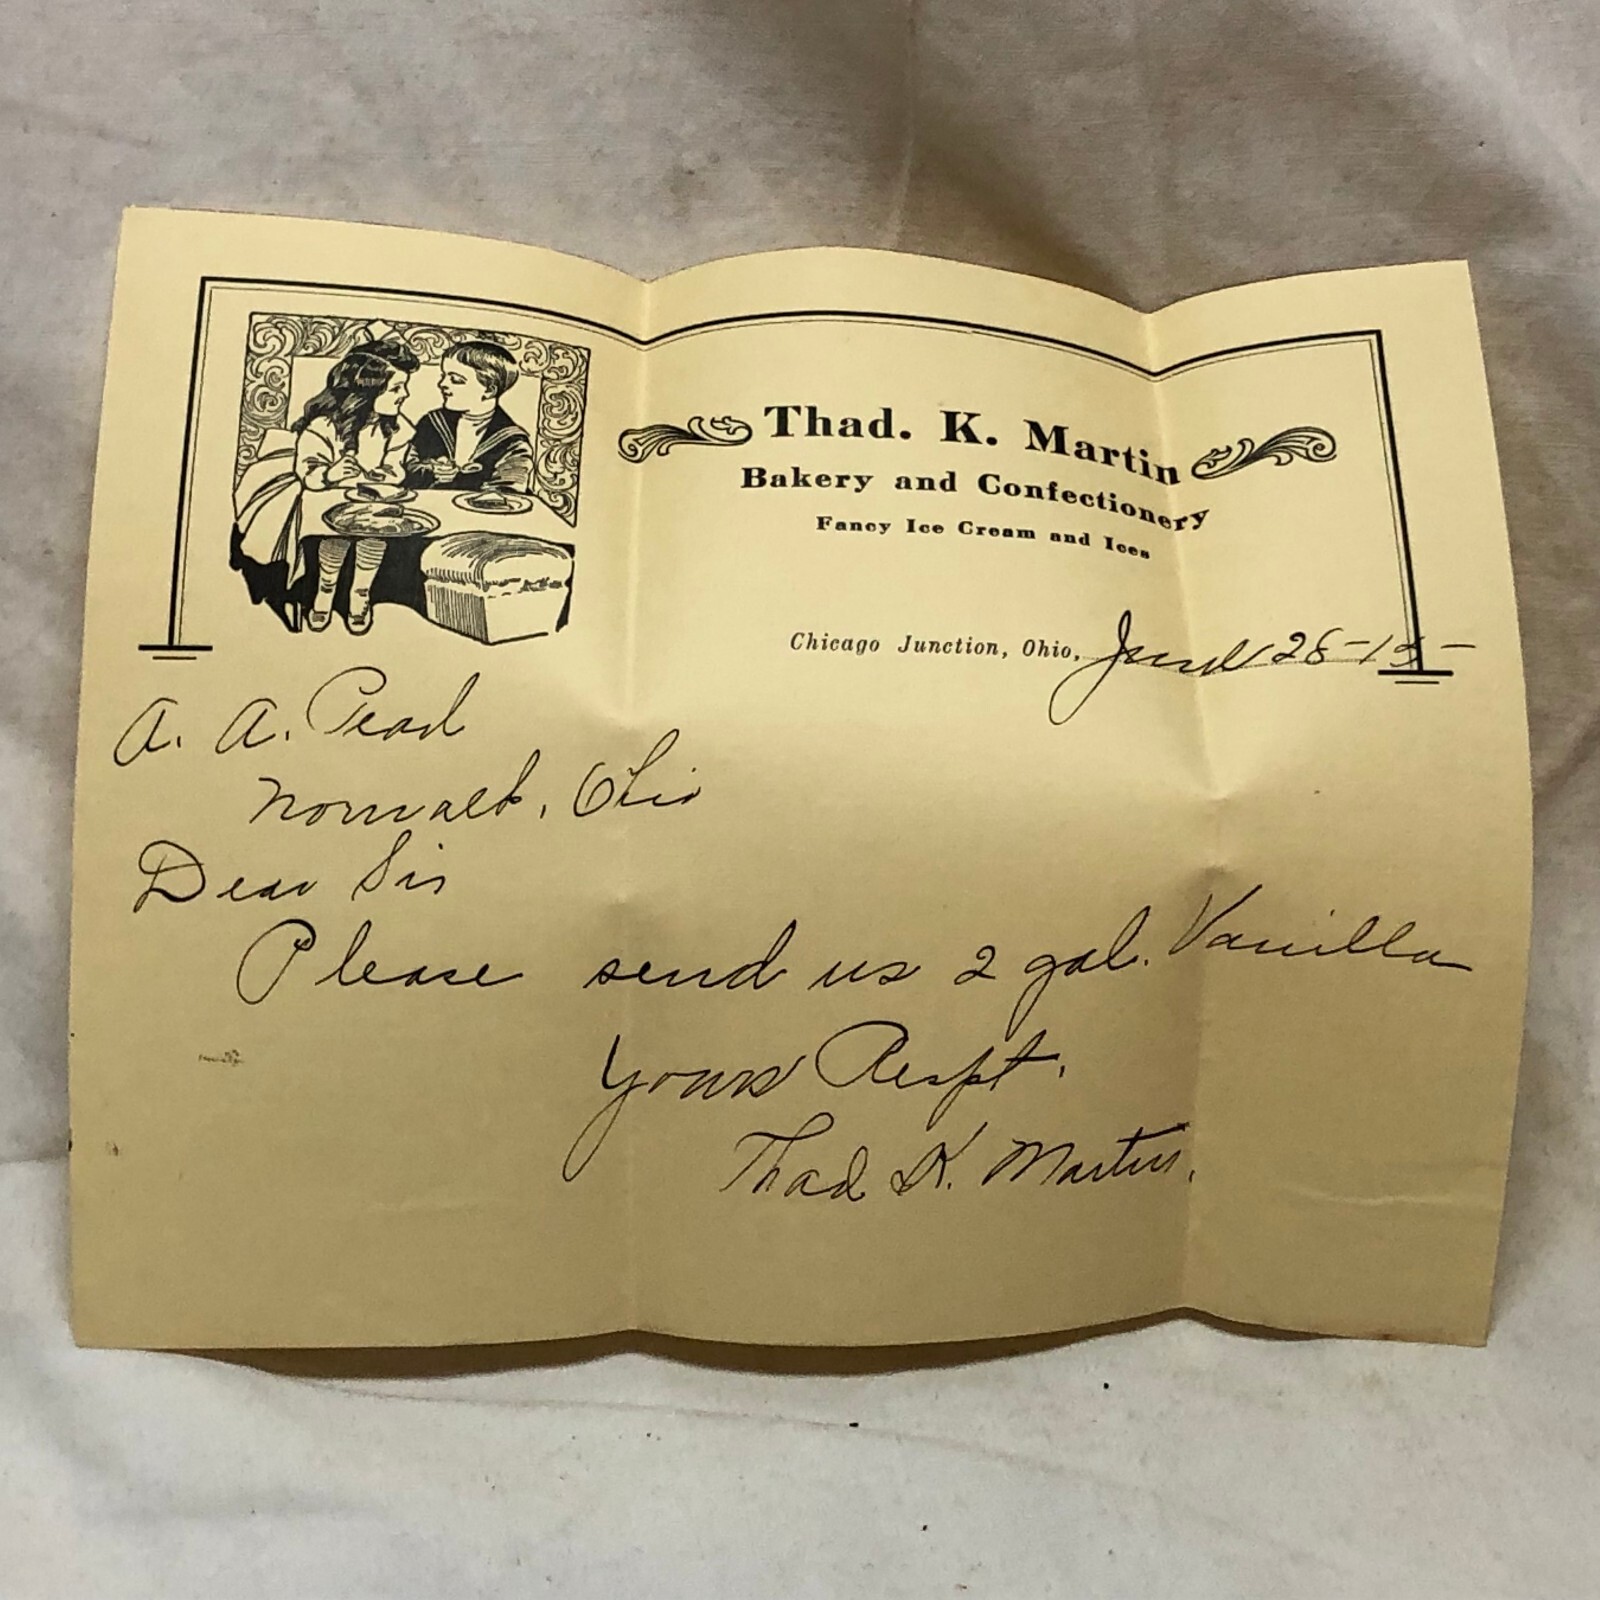 Thad. K. Martin
Bakery and Confectionery
Fancy Ice Cream and Ices
Chicago Junction, Ohio, June 26-15-
A. A. Pead
Norwalk, Ohio
Dear Sir
Please send us 2 gal. Vanilla
Yours Respt.
Thad K. Martin.